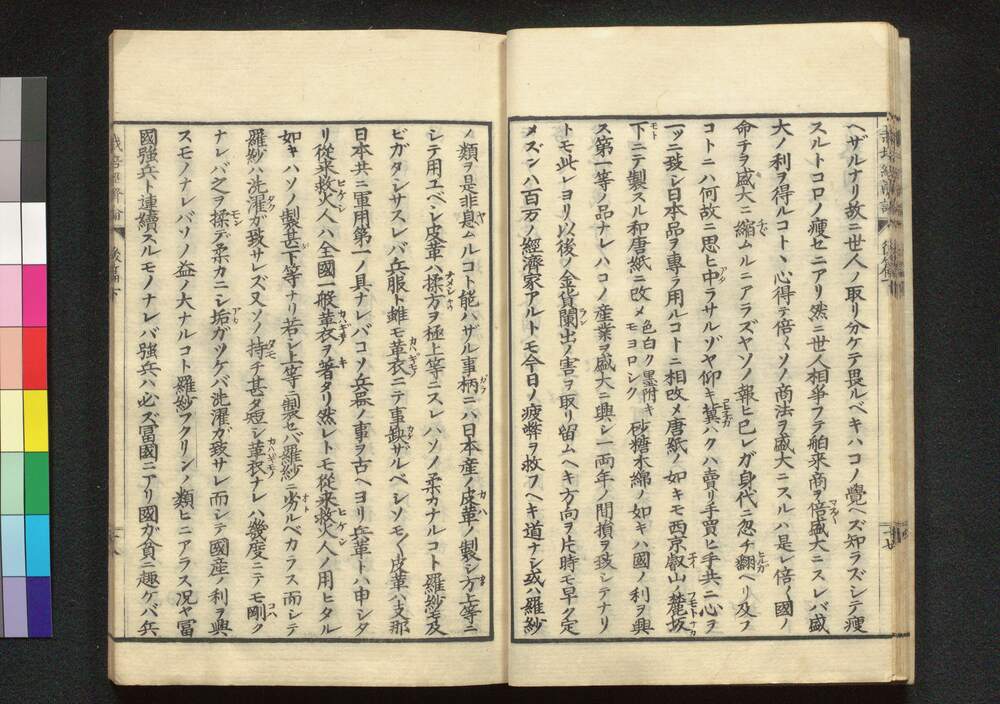 ヘザルナリ故ニ世人ノ取リ分ケテ畏ルベキハコノ覺ヘズ知ラズシテ瘦
スルトコロノ瘦セニアリ然ニ世人相爭フテ舶来商ヲ倍盛大ニスレバ盛
大ノ利ヲ得ルコトヽ心得テ倍〱ソノ商法ヲ盛大ニスルハ是レ倍〱國ノ
命チヲ盛大ニ縮ムルニアラズヤソノ報ヒ已レガ身代ニ忽チ翻ヘリ及フ
コトニハ何故ニ思ヒ中ラサルゾヤ仰キ冀ハクハ賣リ手買ヒ手共ニ心ヲ
一ッニ致シ日本品ヲ專ラ用ルコトニ相改メ唐紙ノ如キモ西京叡山麓坂
下ニテ製スル和唐紙ニ改メ色白ク墨附キモヨロシク砂糖木綿ノ如キハ國ノ利ヲ興
ス第一等ノ品ナレハコノ産業ヲ盛大ニ興シ一両年ノ間損ヲ致シテナリ
トモ此レヨリ以後ノ金貨闌出ノ害ヲ取リ留ムヘキ方向ヲ片時モ早ク定
メズンハ百万ノ經濟家アルトモ今日ノ疲弊ヲ救フヘキ道ナシ或ハ羅紗
ノ類ヲ是非息ムルコト能ハザル事柄ニハ日本産ノ皮革ノ製シ方上等ニ
シテ用ユベシ皮革ハ揉方ヲ極上等ニスレハソノ柔カナルコト羅紗モ及
ビガタシサスレバ兵服ト雖モ革衣ニテ事缺サルベシソモ〱皮革ハ支那
日本共ニ軍用第一ノ具ナレバコソ兵器ノ事ヲ古ヘヨリ兵革トハ申シタ
リ從来救火人ハ全國一般革衣ヲ著タリ然レトモ從来救火人ノ用ヒタル
如キハソノ製甚下等ナリ若シ上等ニ製セバ羅紗ニ劣ルベカラス而シテ
羅紗ハ洗濯ガ致サレズ又ソノ持チ甚タ短シ革衣ナレハ幾度ニテモ剛ク
ナレバ之ヲ揉デ柔カニシ垢ガツケバ洗濯ガ致サレ而シテ國産ノ利ヲ興
スモノナレバソノ益ノ大ナルコト羅紗フクリンノ類ヒニアラス况ヤ冨
國強兵ト連續スルモノナレバ強兵ハ必ズ冨國ニアリ國ガ貧ニ趣ケバ兵